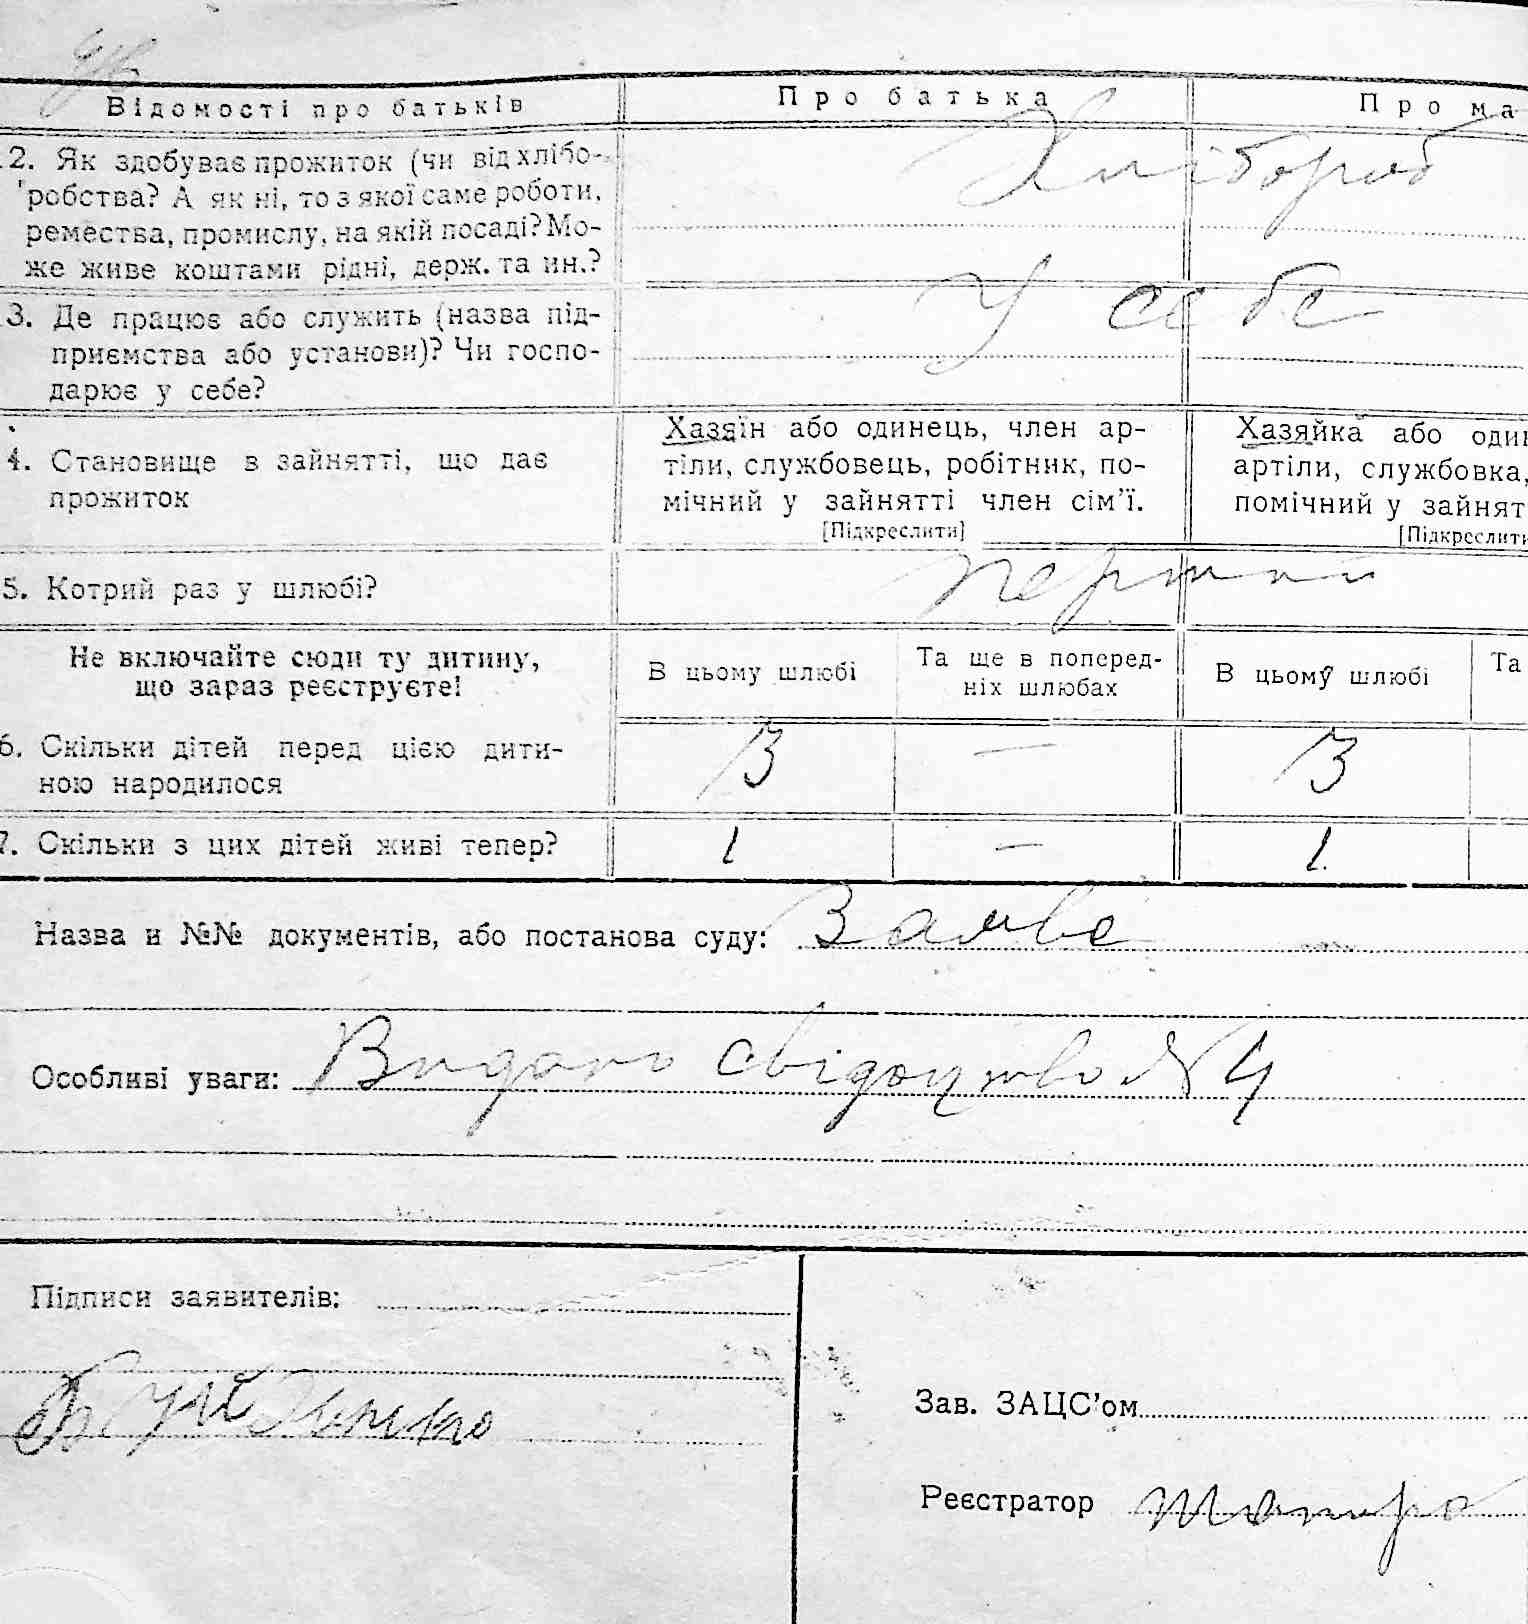 Відомості про батьків
Про батька
Про ма
2. Як здобуває прожиток (чи від хлібо-
робства? А як ні, то з якої саме роботи,
ремества, промислу, на якій посаді? Мо-
же живе коштами рідні, держ. та ин.?
Хлібороб
3. Де працює або служить (назва під-
приємства або установи)? Чи госпо-
дарює у себе?
У себе
4. Становище в зайнятті, що дає
прожиток
Хазяїн або одинець, член ар-
тіли, службовець, робітник, по-
мічний у зайнятті член сім’ї.
[Підкреслити]
Хазяйка або один
артіли, службовка,
помічний у зайнят
[Підкреслити
5. Котрий раз у шлюбі?
перший
Не включайте сюди ту дитину,
що зараз реєструєте!
В цьому шлюбі
Та ще в поперед-
ніх шлюбах
В цьому шлюбі
Та
6. Скільки дітей перед цією дити-
ною народилося
3
—
3
7. Скільки з цих дітей живі тепер?
1
—
1.
Назва и №№ документів, або постанова суду:
Заява
Особливі уваги: Видано свідоцтво № 4
Підписи заявителів:
Зав. ЗАЦС’ом
Реєстратор